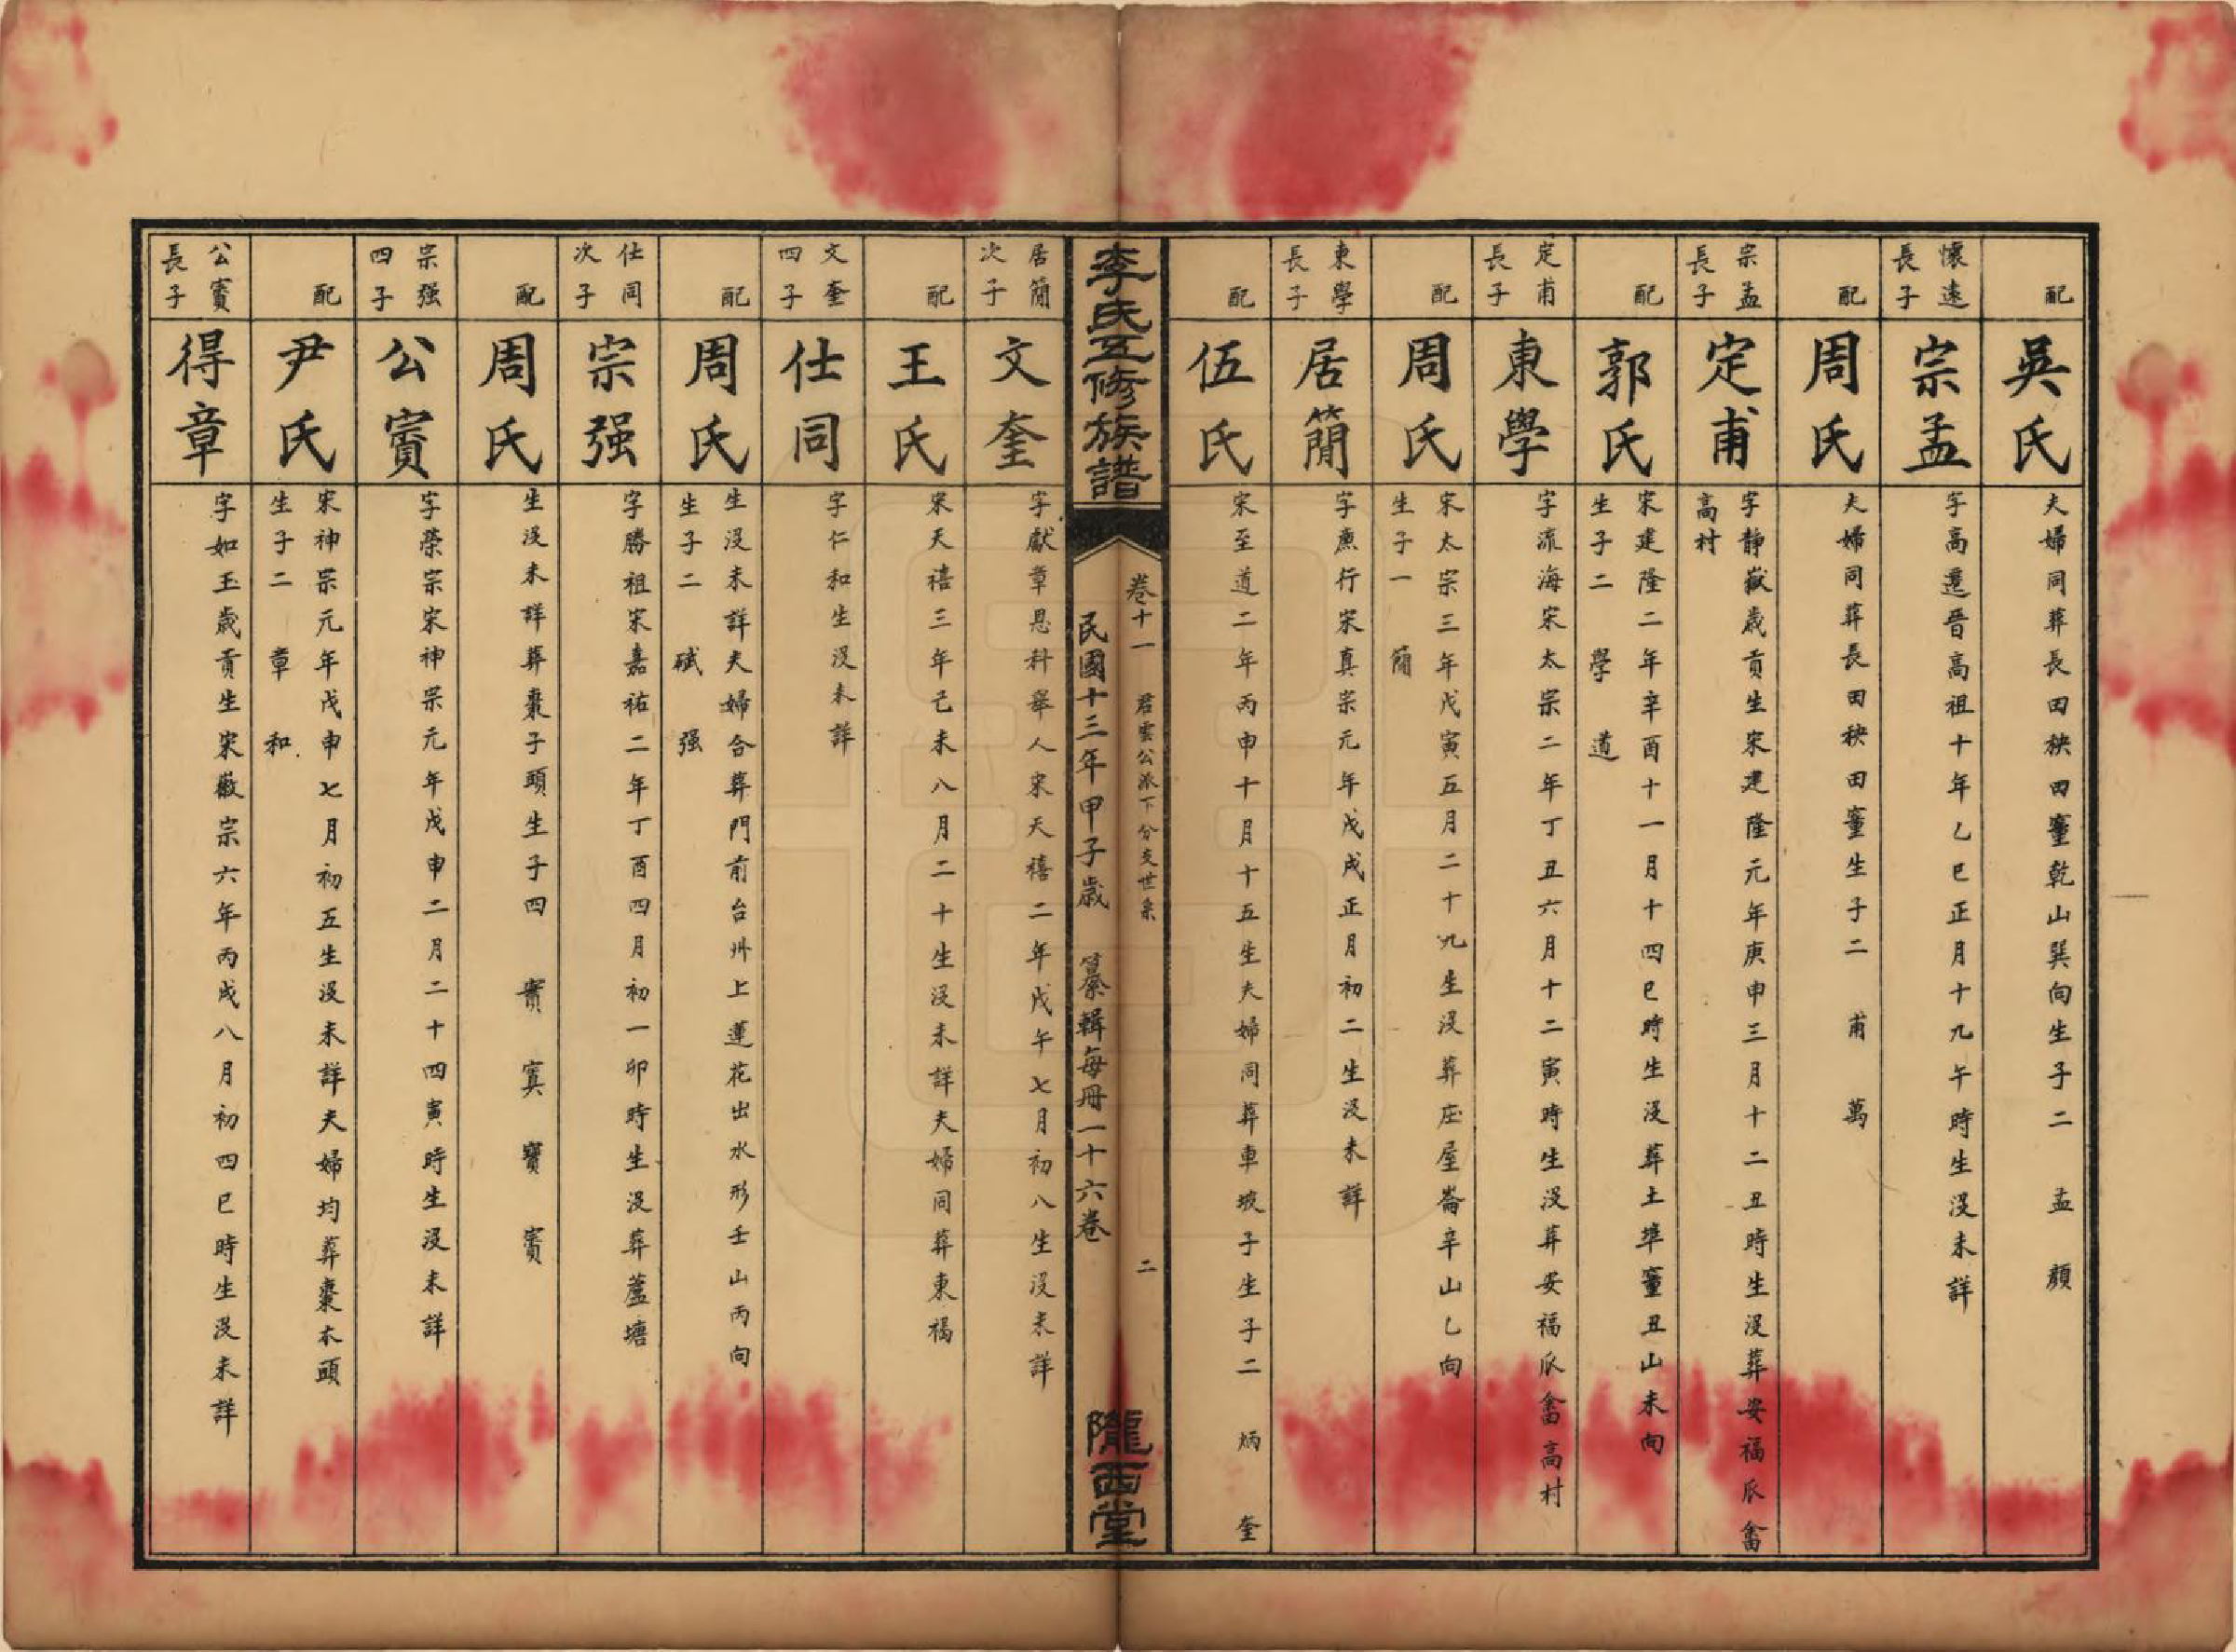 配
吳氏
夫婦同葬長田秧田臺乾山巽向生子二 孟 顏
懷遠
長子
宗孟
字高遷晉高祖十年乙巳正月十九午時生沒未詳
配
周氏
夫婦同葬長田秧田臺生子二 甫 萬
宗孟
長子
定甫
字靜嶽歲貢生宋建隆元年庚申三月十二丑時生沒葬安福瓜畬
高村
配
郭氏
宋建隆二年辛酉十一月十四巳時生沒葬土準臺丑山未向
生子二 學 道
定甫
長子
東學
字流海宋太宗二年丁丑六月十二寅時生沒葬安福瓜畬高村
配
周氏
宋太宗三年戊寅五月二十九生沒葬庄屋崙辛山乙向
生子一 簡
東學
長子
居簡
字庶行宋真宗元年戊戌正月初二生沒未詳
配
伍氏
宋至道二年丙申十月十五生夫婦同葬車坡子生子二 炳 奎
李氏五修族譜
卷十一 君雲公派下分支世系 二
民國十三年甲子歲 纂輯每冊一十六卷
隴西堂
居簡
次子
文奎
字獻章恩科舉人宋天禧二年戊午七月初八生沒未詳
配
王氏
宋天禧三年己未八月二十生沒未詳夫婦同葬東褐
文奎
四子
仕同
字仁和生沒未詳
配
周氏
生沒未詳夫婦合葬門前台州上蓮花出水形壬山丙向
生子二 斌 强
仕同
次子
宗强
字勝祖宋嘉祐二年丁酉四月初一卯時生沒葬蘆塘
配
周氏
生沒未詳葬棗子頭生子四 實 寞 寶 賓
宗强
四子
公賓
字榮宗宋神宗元年戊申二月二十四寅時生沒未詳
配
尹氏
宋神宗元年戊申七月初五生沒未詳夫婦均葬棗木頭
生子二 章 和
公賓
長子
得章
字如玉歲貢生宋徽宗六年丙戌八月初四巳時生沒未詳